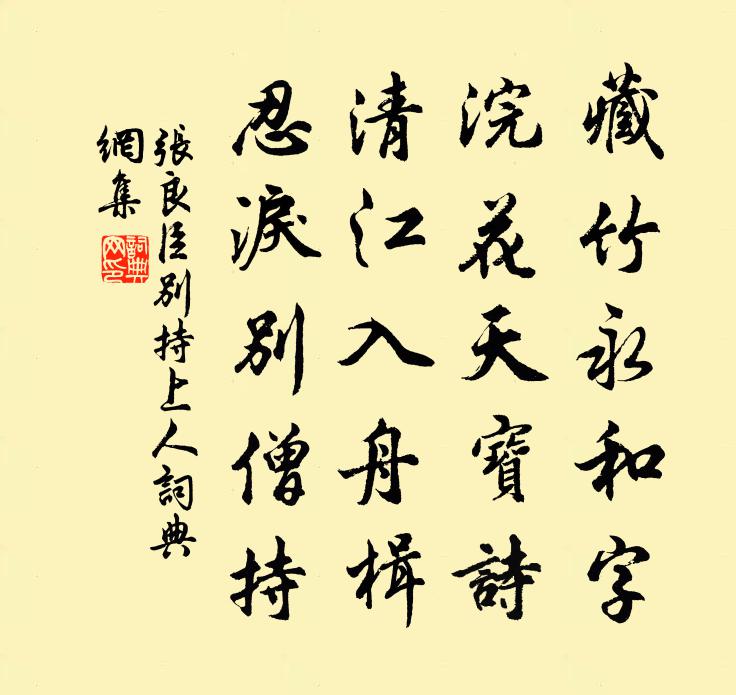 藏竹永和字
浣花天寶詩
清江入舟楫
忍淚別僧持
張良臣別持上人詞典
網集
詞典
网印